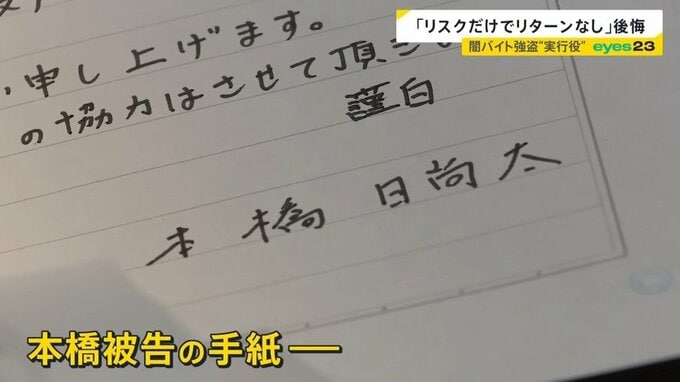 「リスクだけでリターンなし」後悔
闇バイト強盗“実行役” eyes23
申し上げます。
の協力はさせて頂き
謹白
本橋日尚太
本橋被告の手紙──